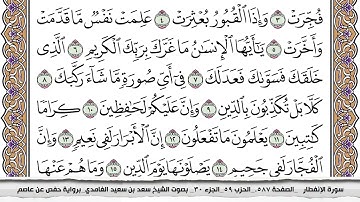 فُجِّرَتْ ٣ وَإِذَا ٱلْقُبُورُ بُعْثِرَتْ ٤ عَلِمَتْ نَفْسٌ مَّا قَدَّمَتْ
وَأَخَّرَتْ ٥ يَٰٓأَيُّهَا ٱلْإِنسَٰنُ مَا غَرَّكَ بِرَبِّكَ ٱلْكَرِيمِ ٦ ٱلَّذِى
خَلَقَكَ فَسَوَّىٰكَ فَعَدَلَكَ ٧ فِىٓ أَىِّ صُورَةٍ مَّا شَآءَ رَكَّبَكَ ٨
كَلَّا بَلْ تُكَذِّبُونَ بِٱلدِّينِ ٩ وَإِنَّ عَلَيْكُمْ لَحَٰفِظِينَ ١٠ كِرَامًا
كَٰتِبِينَ ١١ يَعْلَمُونَ مَا تَفْعَلُونَ ١٢ إِنَّ ٱلْأَبْرَارَ لَفِى نَعِيمٍ ١٣ وَإِنَّ
ٱلْفُجَّارَ لَفِى جَحِيمٍ ١٤ يَصْلَوْنَهَا يَوْمَ ٱلدِّينِ ١٥ وَمَا هُمْ عَنْهَا
سورة الإنفطار _الصفحة ٥٨٧_ الحزب ٥٩_ الجزء ٣٠_ بصوت الشيخ سعد بن سعيد الغامدي _برواية حفص عن عاصم